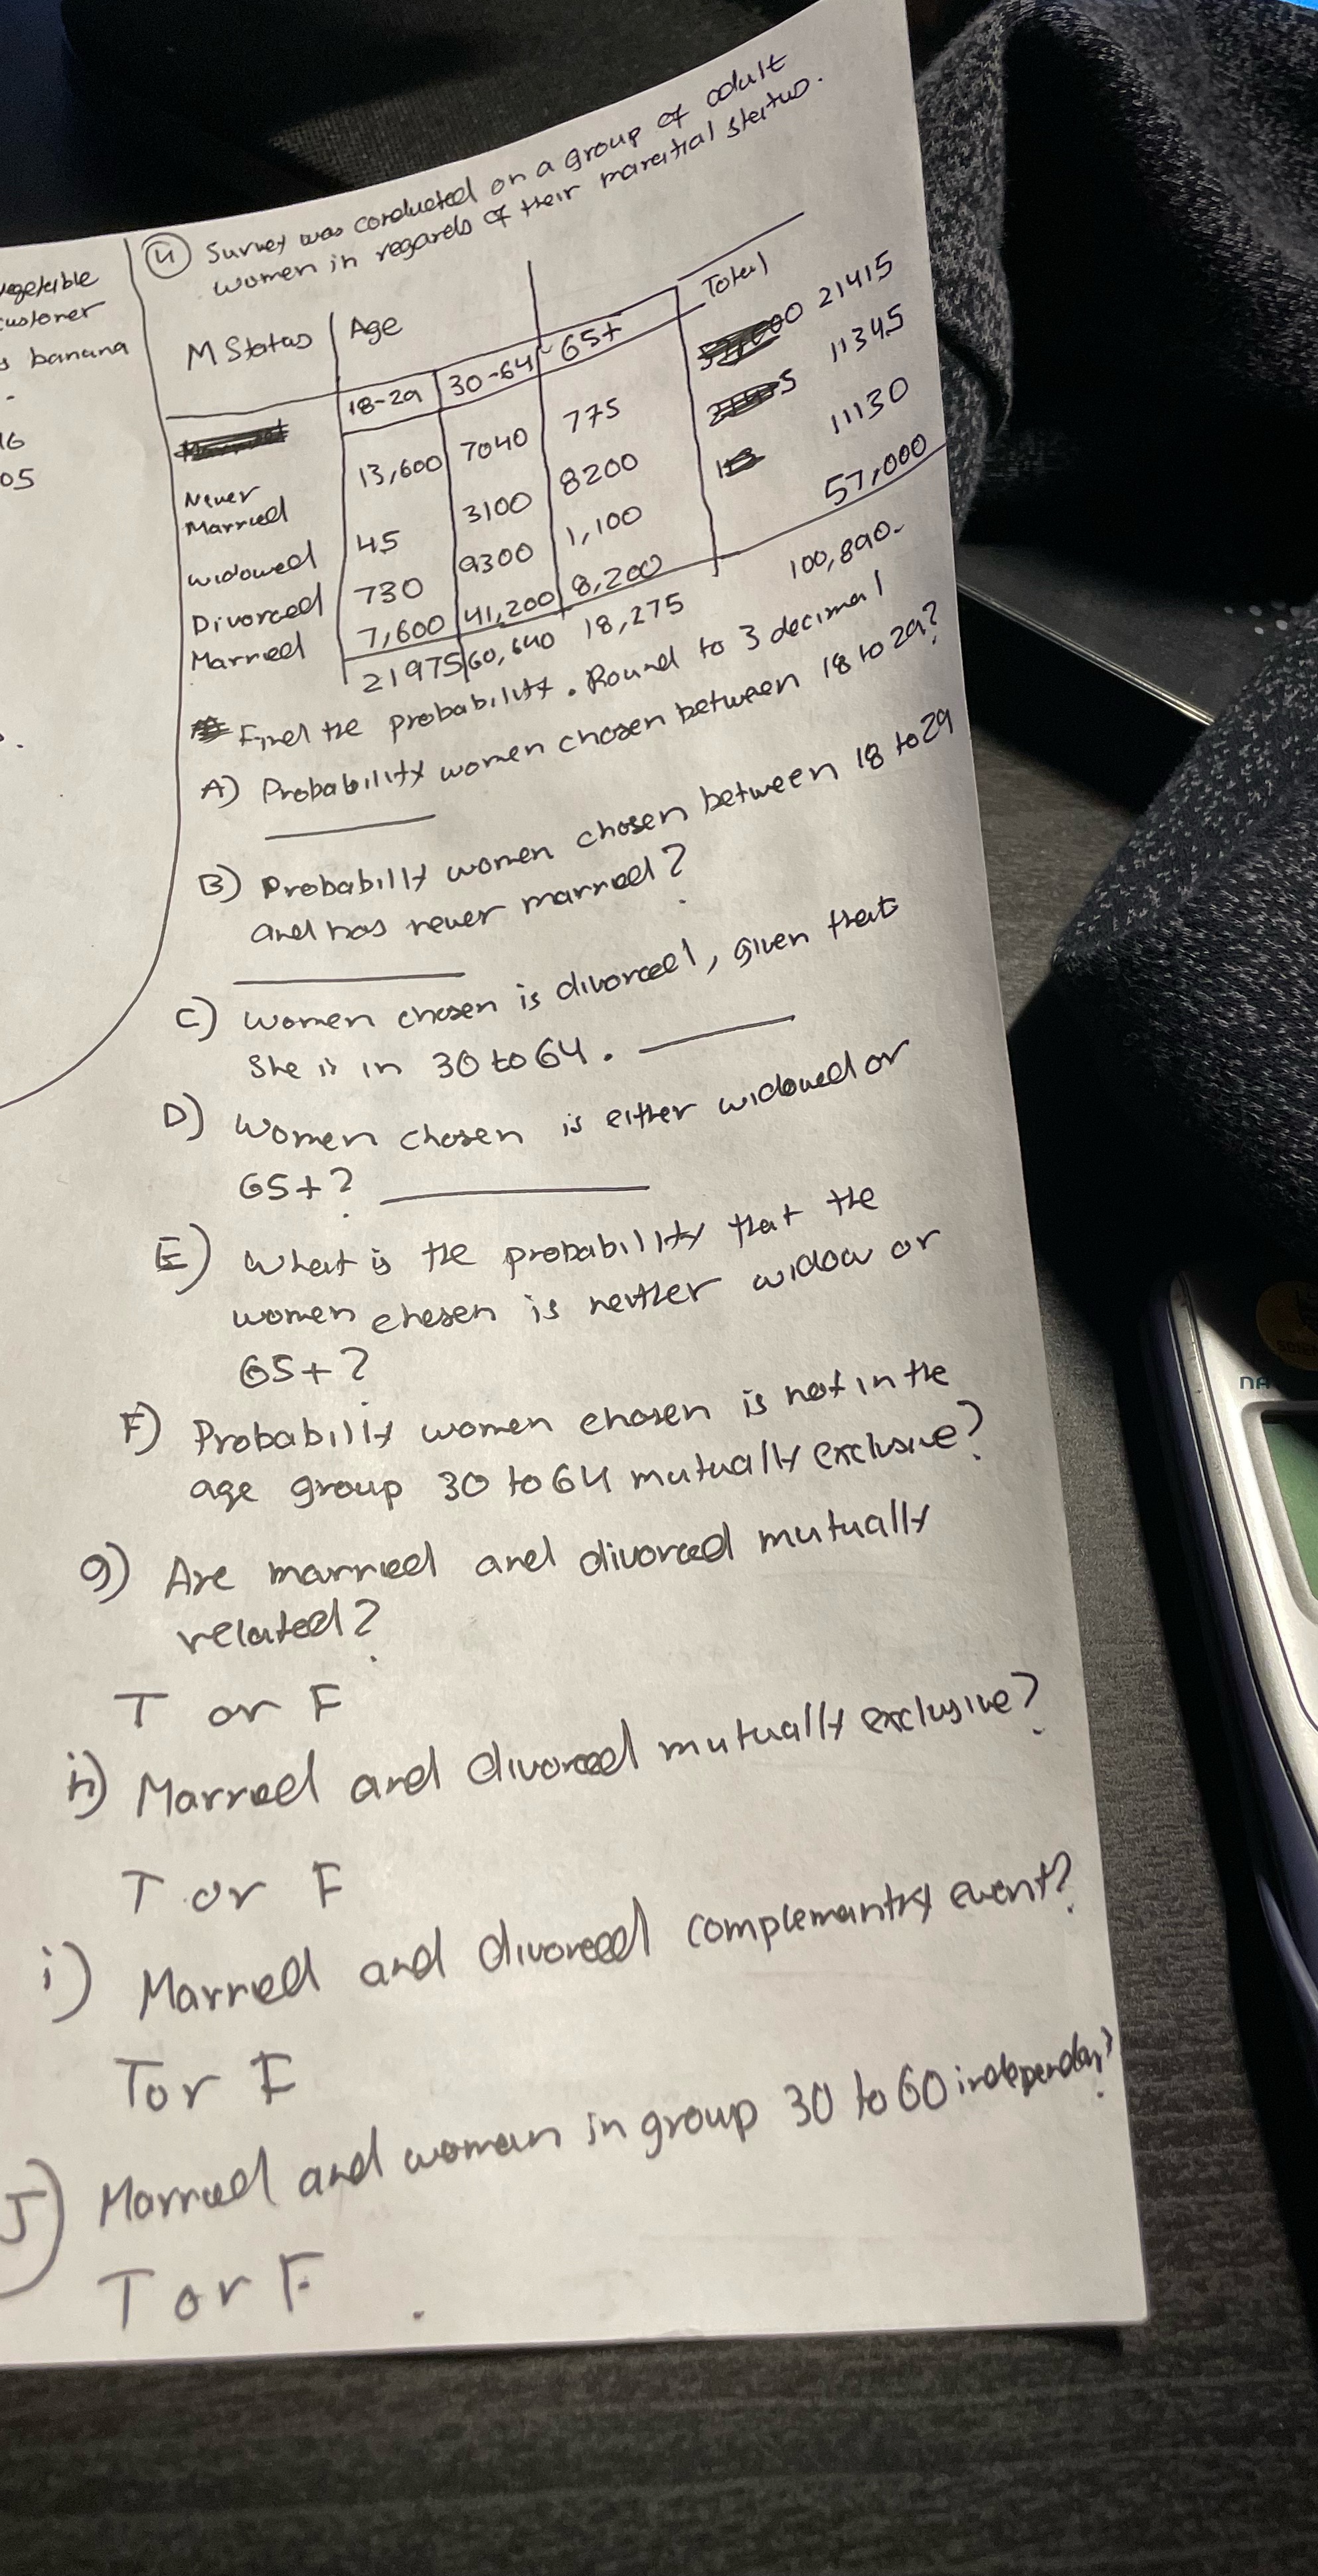 vegetable
customer
s banana
16
05
4 Survey was conducted on a group of adult
women in regards of their maratial status.
M Status Age Total
18-29 30-64 65+
Never
Married 13,600 7040 775 21415
Widowed 45 3100 8200 11345
Divorced 730 9300 1,100 11130
Married 7,600 41,200 8,200 57,000
21975 60,640 18,275 100,890.
Find the probability. Round to 3 decimal
A) Probability women chosen between 18 to 29?
B) Probabilly women chosen between 18 to 29
and has never married?
C) Women chosen is divorced, given that
She is in 30 to 64.
D) Women chosen is either widowed or
65+?
E) What is the probability that the
women chosen is neither widow or
65+?
F) Probability women chosen is not in the
age group 30 to 64 mutually exclusive?
g) Are married and divorced mutually
related?
T or F
h) Married and divorced mutually exclusive?
T or F
i) Married and divorced complemantry event?
T or F
J) Married and woman in group 30 to 60
T or F.
NA